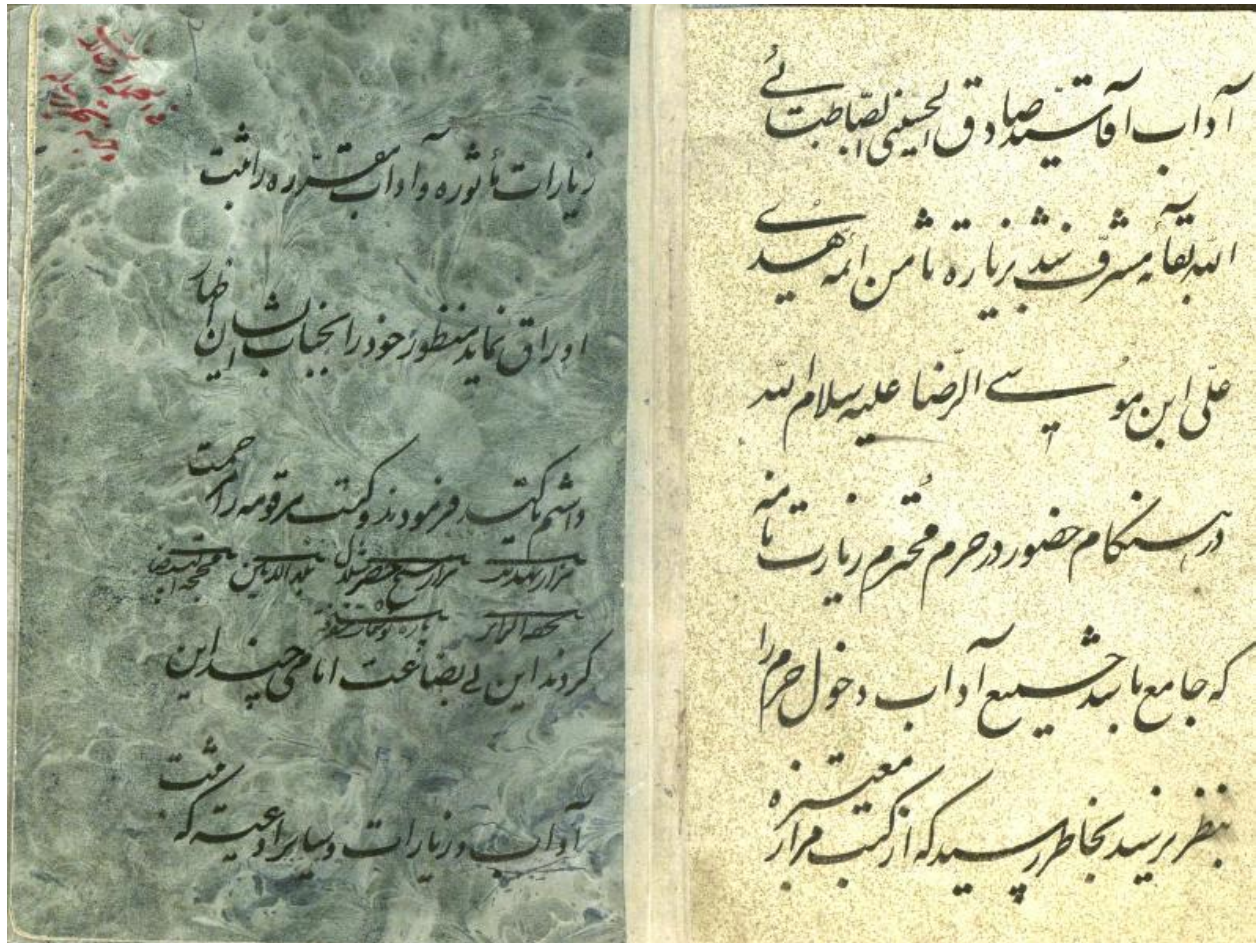 آداب آقا سید صادق الحسینی الطباطبائی
الله بقائه مشرف شد بزیاره ثامن ائمه هدی
علی ابن موسی الرضا علیه سلام الله
در هنگام حضور در حرم محترم زیارت تامه
که جامع باشد جمیع آداب دخول حرم را
بنظر نرسید بخاطر رسید که از کتب مزار معتبره
زیارات مأثوره و آداب مقرره را ثبت
اوراق نماید منظور خود را بجناب ایشان اظهار
داشتم تأکید فرمودند و کتب مرقومه را مرحمت
تحفة الزائر
کردند این بی بضاعت اسامی چند این
آداب و زیارات و سایر ادعیه که